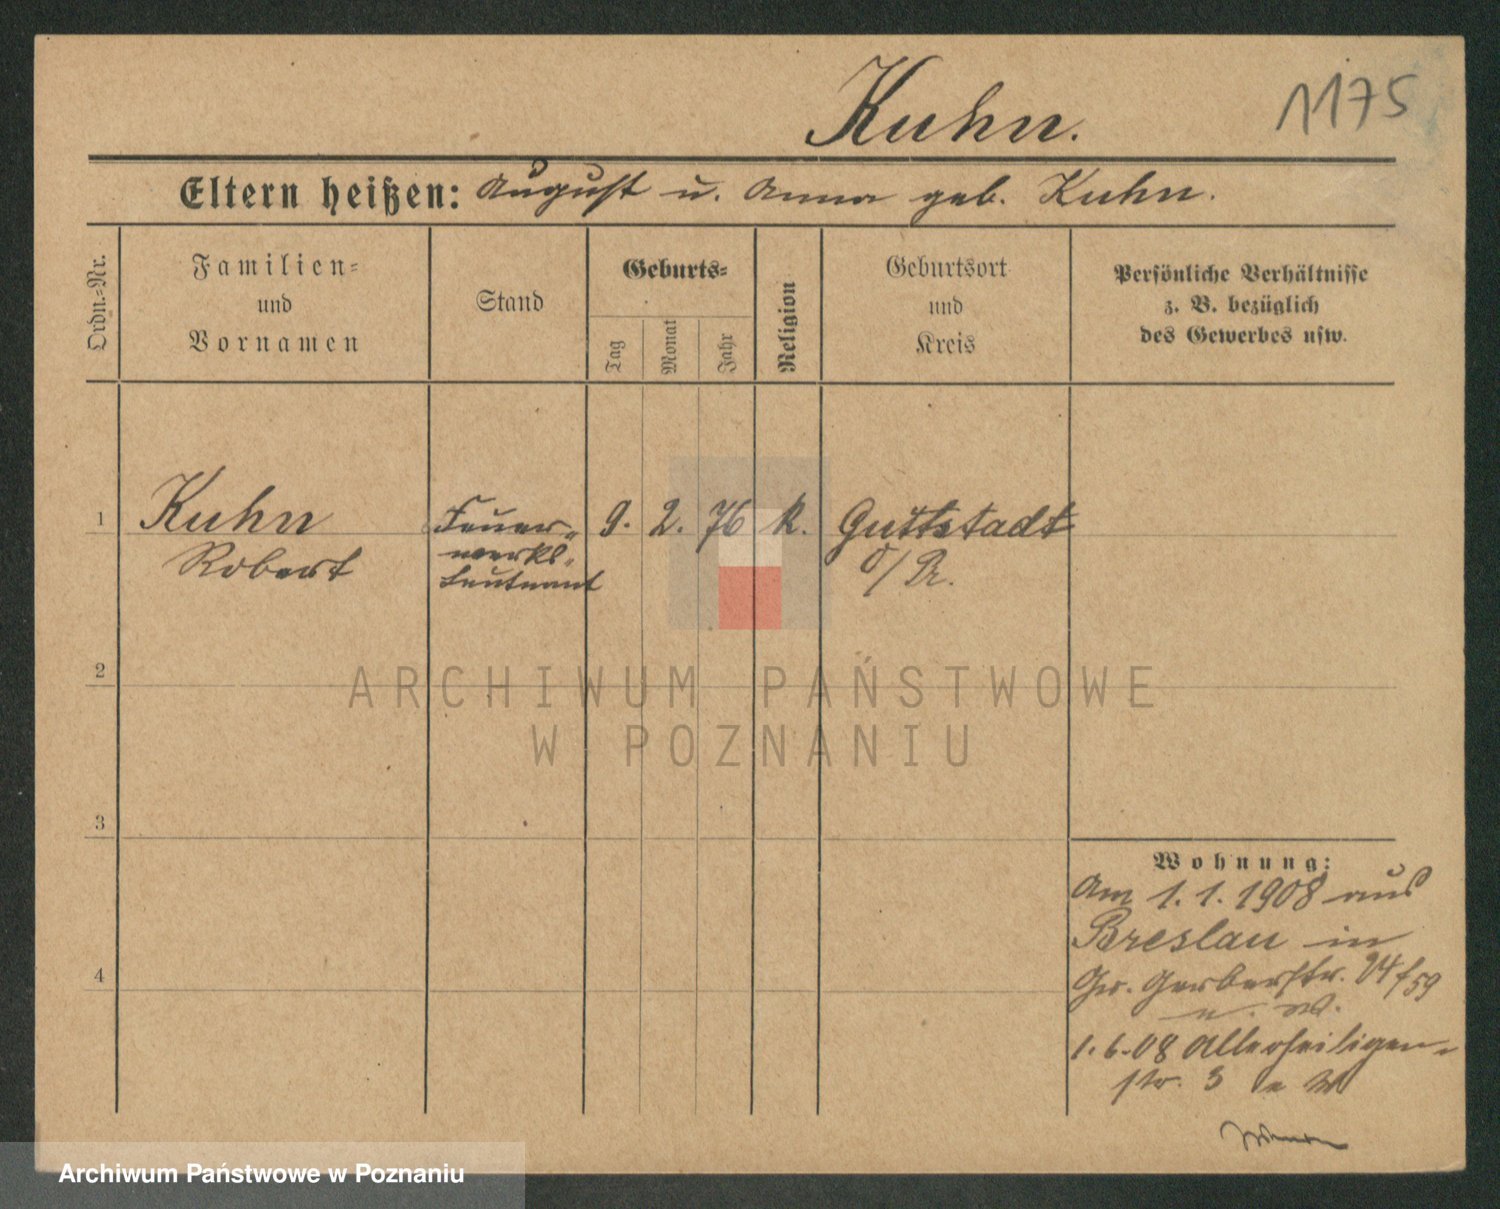 Kuhn.
1175
Eltern heißen: August u. Anna geb. Kuhn.
Ordn.-Nr.
Familien-
und
Vornamen
Stand
Geburts-
Tag
Monat
Jahr
Religion
Geburtsort
und
Kreis
Persönliche Verhältnisse
z. B. bezüglich
des Gewerbes usw.
1
Kuhn
Robert
Feuer-
werks-
Leutnant
9. 2. 76
k.
Guttstadt
O/Pr.
ARCHIWUM PAŃSTWOWE
W POZNANIU
2
3
4
Wohnung:
Am 1.1.1908 aus
Breslau in
Gr. Gerberstr.
1.6.08 Allerheiligen-
str. 3
Archiwum Państwowe w Poznaniu